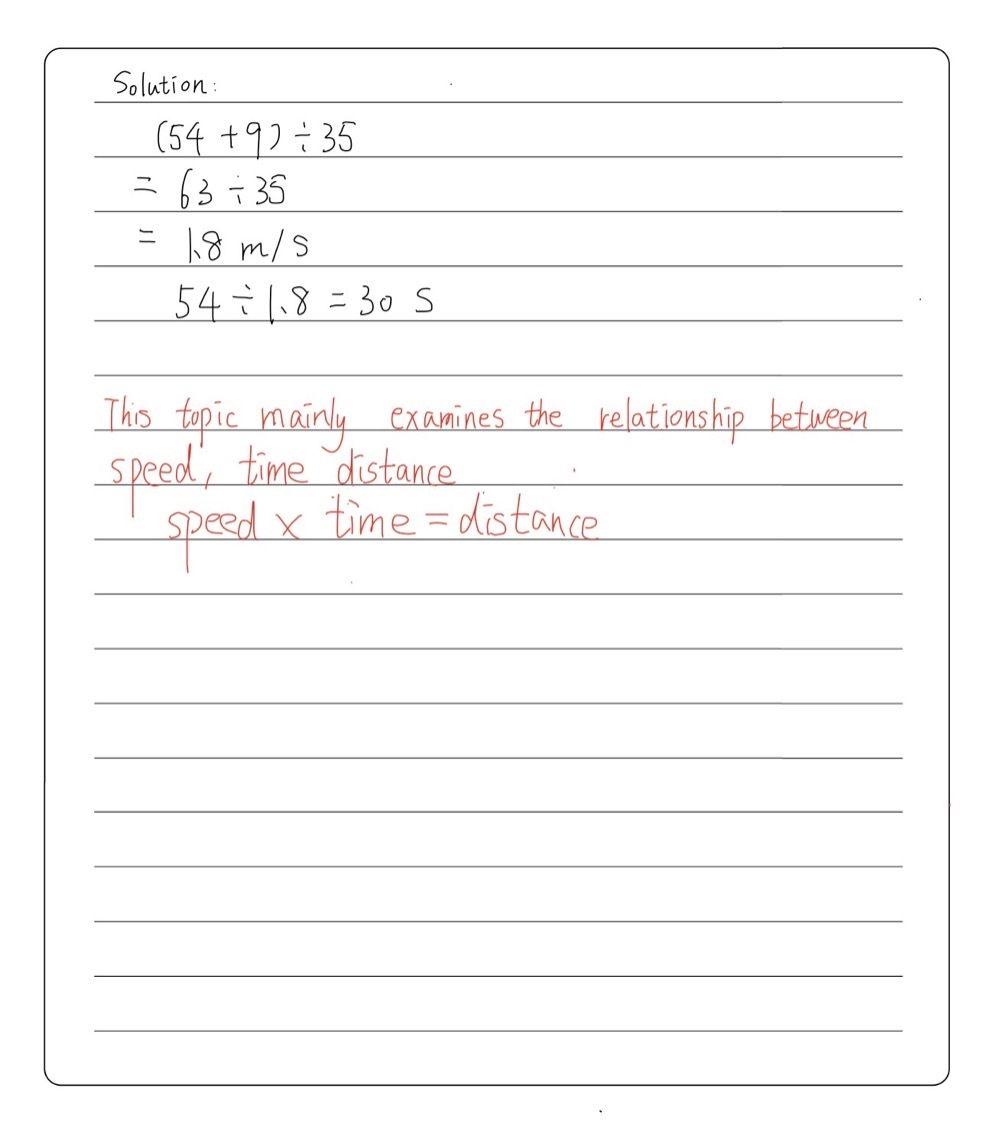 Solution:
(54 + 9) ÷ 35
= 63 ÷ 35
= 1.8 m/s
54 ÷ 1.8 = 30 S
This topic mainly examines the relationship between
speed, time distance
speed × time = distance